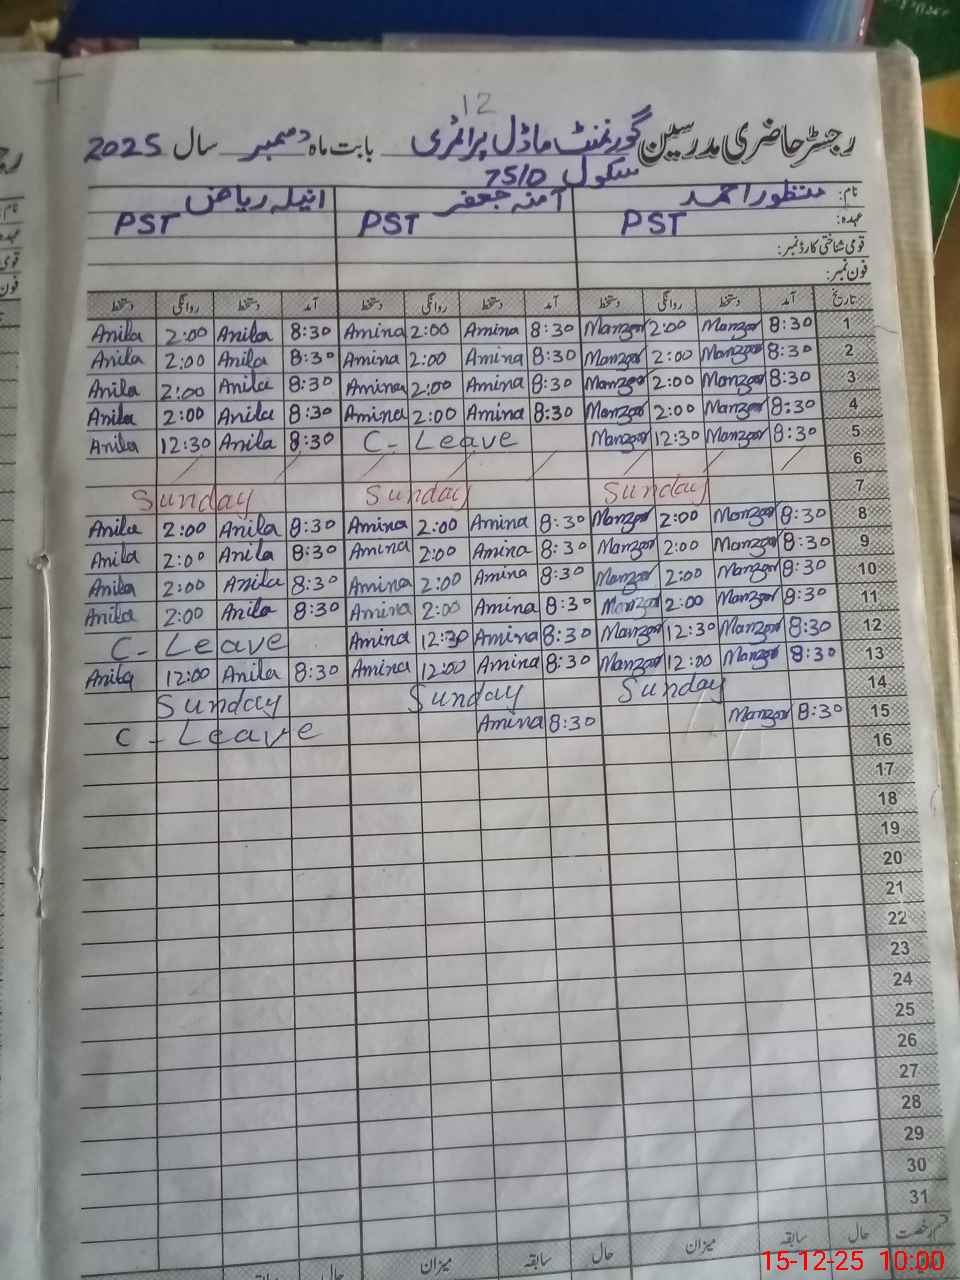 12
رجسٹر حاضری مدرسین گورنمنٹ ماڈل پرائمری بابت ماہ دسمبر سال 2025
سکول 75/D
نام: منظور احمد آمنہ جعفر انیلہ ریاض
عہدہ: PST PST PST
قومی شناختی کارڈ نمبر:
فون نمبر:
تاریخ آمد دستخط روانگی دستخط آمد دستخط روانگی دستخط آمد دستخط روانگی دستخط
Anila 2:00 Anila 8:30 Amina 2:00 Amina 8:30 Manzoor 2:00 Manzoor 8:30 1
Anila 2:00 Anila 8:30 Amina 2:00 Amina 8:30 Manzoor 2:00 Manzoor 8:30 2
Anila 2:00 Anila 8:30 Amina 2:00 Amina 8:30 Manzoor 2:00 Manzoor 8:30 3
Anila 2:00 Anila 8:30 Amina 2:00 Amina 8:30 Manzoor 2:00 Manzoor 8:30 4
Anila 12:30 Anila 8:30 C - Leave Manzoor 12:30 Manzoor 8:30 5
6
Sunday Sunday Sunday 7
Anila 2:00 Anila 8:30 Amina 2:00 Amina 8:30 Manzoor 2:00 Manzoor 8:30 8
Anila 2:00 Anila 8:30 Amina 2:00 Amina 8:30 Manzoor 2:00 Manzoor 8:30 9
Anila 2:00 Anila 8:30 Amina 2:00 Amina 8:30 Manzoor 2:00 Manzoor 8:30 10
Anila 2:00 Anila 8:30 Amina 2:00 Amina 8:30 Manzoor 2:00 Manzoor 8:30 11
C - Leave Amina 12:30 Amina 8:30 Manzoor 12:30 Manzoor 8:30 12
Anila 12:00 Anila 8:30 Amina 12:00 Amina 8:30 Manzoor 12:00 Manzoor 8:30 13
Sunday Sunday Sunday 14
C - Leave Amina 8:30 Manzoor 8:30 15
16
17
18
19
20
21
22
23
24
25
26
27
28
29
30
31
قسم رخصت حال سابقہ میزان حال سابقہ میزان حال سابقہ
15-12-25 10:00